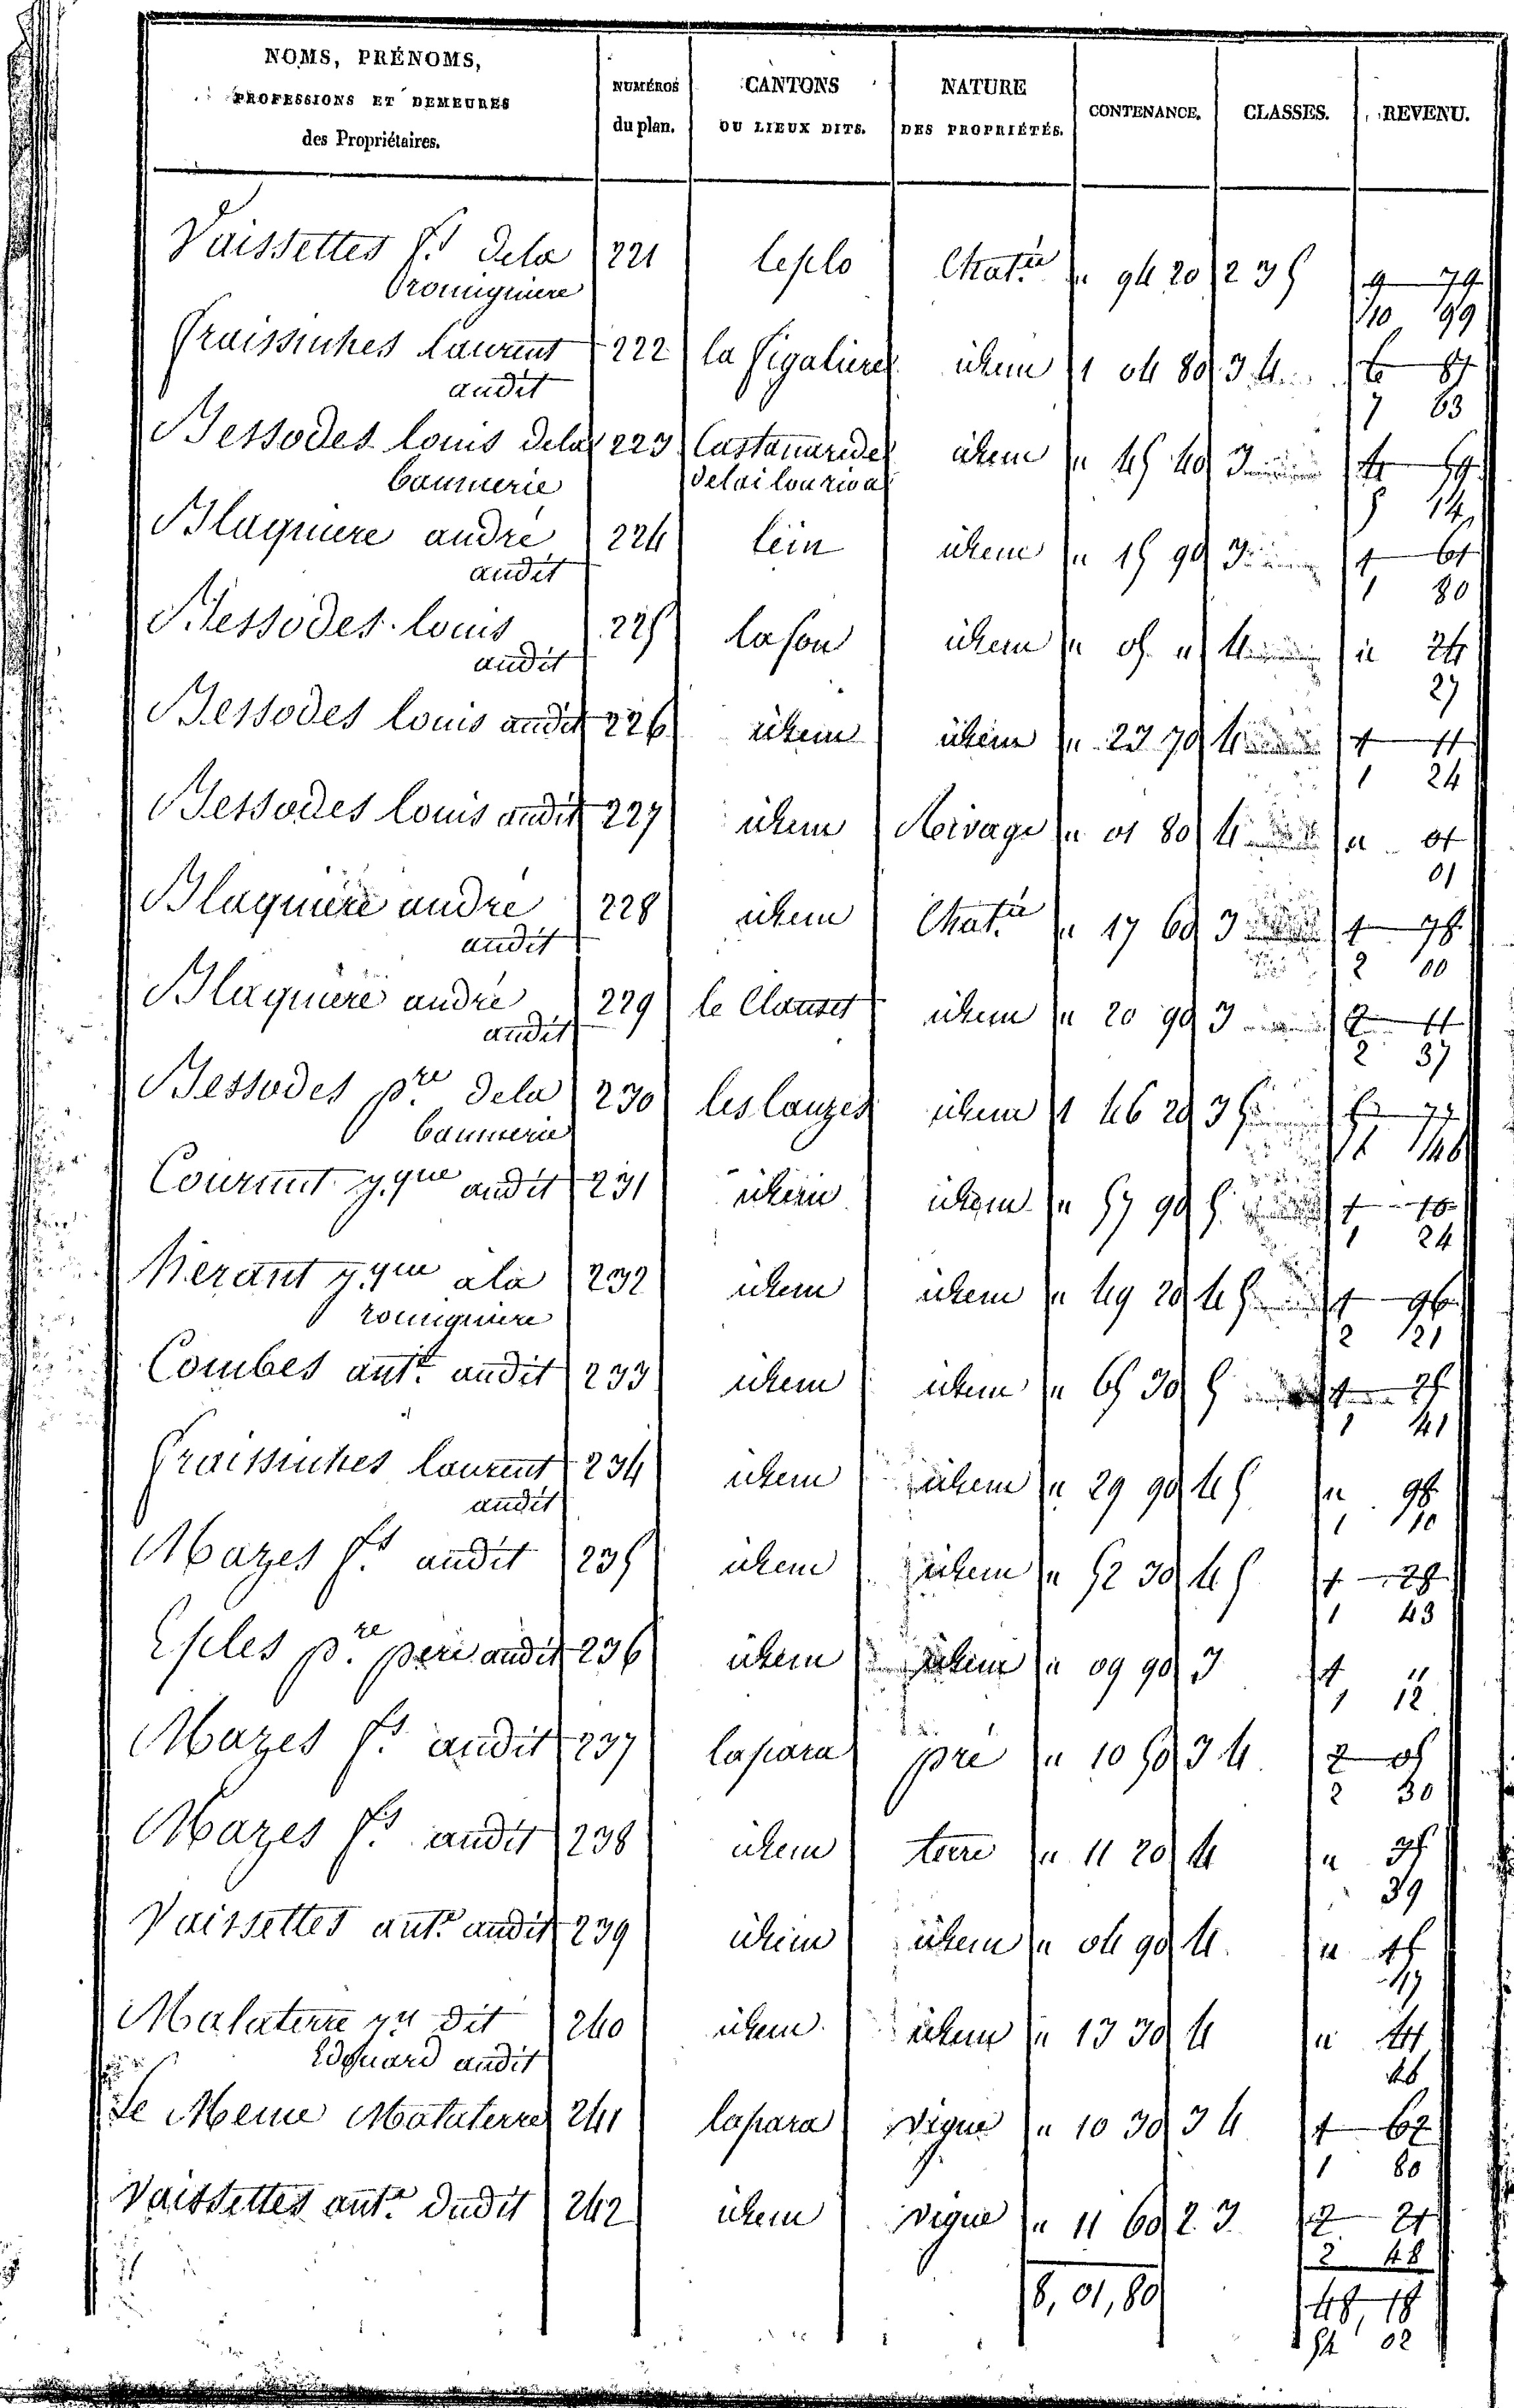 NOMS, PRÉNOMS,
PROFESSIONS ET DEMEURES
des Propriétaires.
NUMÉROS
du plan.
CANTONS
OU LIEUX DITS.
NATURE
DES PROPRIÉTÉS.
CONTENANCE.
CLASSES.
REVENU.
Vaissettes f.s dela 221 leplo Chat.re " 94 20 2 3 5 9 79
romiguiere 10 99
Fraissinhes laurent 222 la figaliere idem 1 04 80 3 4 6 81
audit 7 63
Bessodes louis dela 223 Castanarede idem " 45 40 3 4 59
baumerie delai lou riva 5 14
Blaquiere andré 224 lein idem " 15 90 3 1 61
audit 1 80
Bessodes louis 225 lafon idem " 05 " 4 " 24
audit 27
Bessodes louis audit 226 idem idem " 23 70 4 1 11
1 24
Bessodes louis audit 227 idem Rivage " 01 80 4 " 01
01
Blaquiere andré 228 idem Chat.re " 17 60 3 1 78
audit 2 00
Blaquiere andré 229 le Clauset idem " 20 90 3 2 11
audit 2 37
Bessodes p.re dela 230 les lauzes idem 1 46 20 3 5
baumerie
Courant j.que audit 231 idem idem " 57 90 5 1 10
1 24
Merant j.que ala 232 idem idem " 49 20 4 5 1 96
romiguiere 2 21
Combes ant.e audit 233 idem idem " 65 30 5 1 25
1 41
Fraissinhes laurent 234 idem idem " 29 90 4 5 " 98
audit 1 10
Mazes f.s audit 235 idem idem " 52 30 4 5 1 28
1 43
Esples p.re pere audit 236 idem idem " 09 90 3 1 "
1 12
Mazes f.s audit 237 lapara pré " 10 50 3 4 2 05
2 30
Mazes f.s audit 238 idem terre " 11 20 4 " 35
39
Vaissettes ant.e audit 239 idem idem " 04 90 4 " 15
17
Malaterre dit 240 idem idem " 13 30 4 " 41
Edouard audit 46
Le Meme Malaterre 241 lapara vigne " 10 30 3 4 1 62
1 80
Vaissettes ant.e dudit 242 idem vigne " 11 60 2 3 2 21
2 48
8,01,80 48,18
54 02